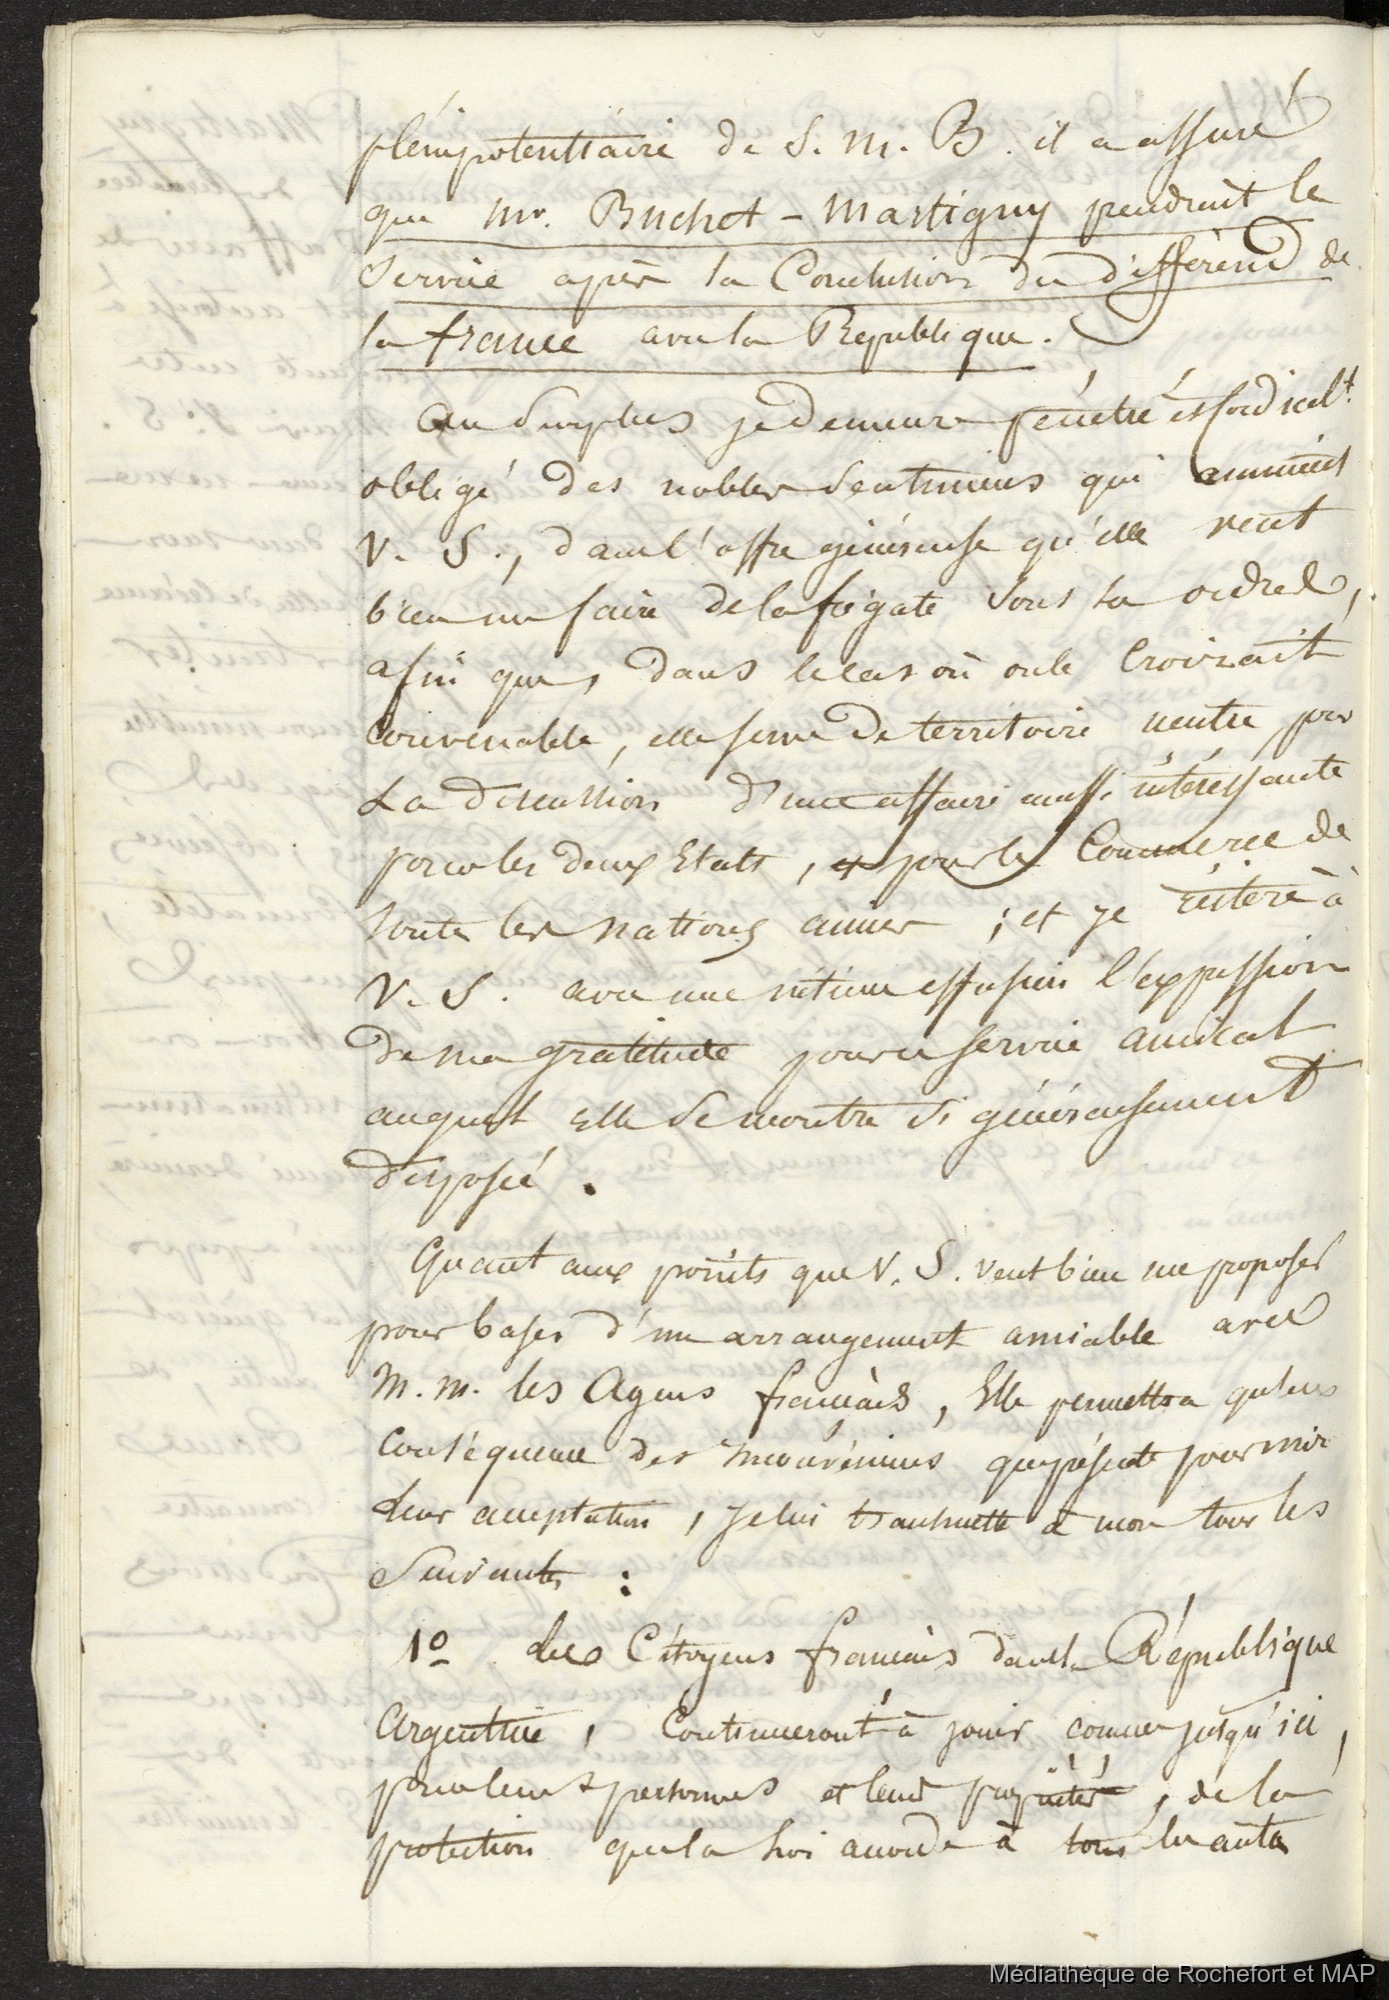 plénipotentiaire de S. M. B. il a assuré
que Mr. Buchet-Martigny prendrait le
service après la Conclusion du différend de
la france avec la République.
Au Surplus je demeure pénétré et cordialt.
obligé des nobles Sentimens qui animent
V. S., dans l'offre généreuse qu'elle veut
bien me faire de la frégate sous ses ordres,
afin que, dans le cas où on le croirait
Convenable, elle serve de territoire neutre pour
La discussion d'une affaire aussi intéressante
pour les deux Etats, et pour le Commerce de
toutes les nations amies ; et je réitère à
V. S. avec une intime effusion l'expression
de ma gratitude pour ce service amical
auquel Elle se montre si généreusement
disposée.
Quant aux points que V. S. veut bien me proposer
pour bases d'un arrangement amiable avec
M. M. les Agens français, Elle permettra qu'en
conséquence des inconvéniens que présente pour moi
leur acceptation, je lui transmette à mon tour les
Suivants :
1o. Les Citoyens français dans la République
Argentine, Continueront à jouir comme jusqu'ici,
pour leurs personnes et leurs propriétés, de la
protection que la loi accorde à tous les autres
Médiathèque de Rochefort et MAP